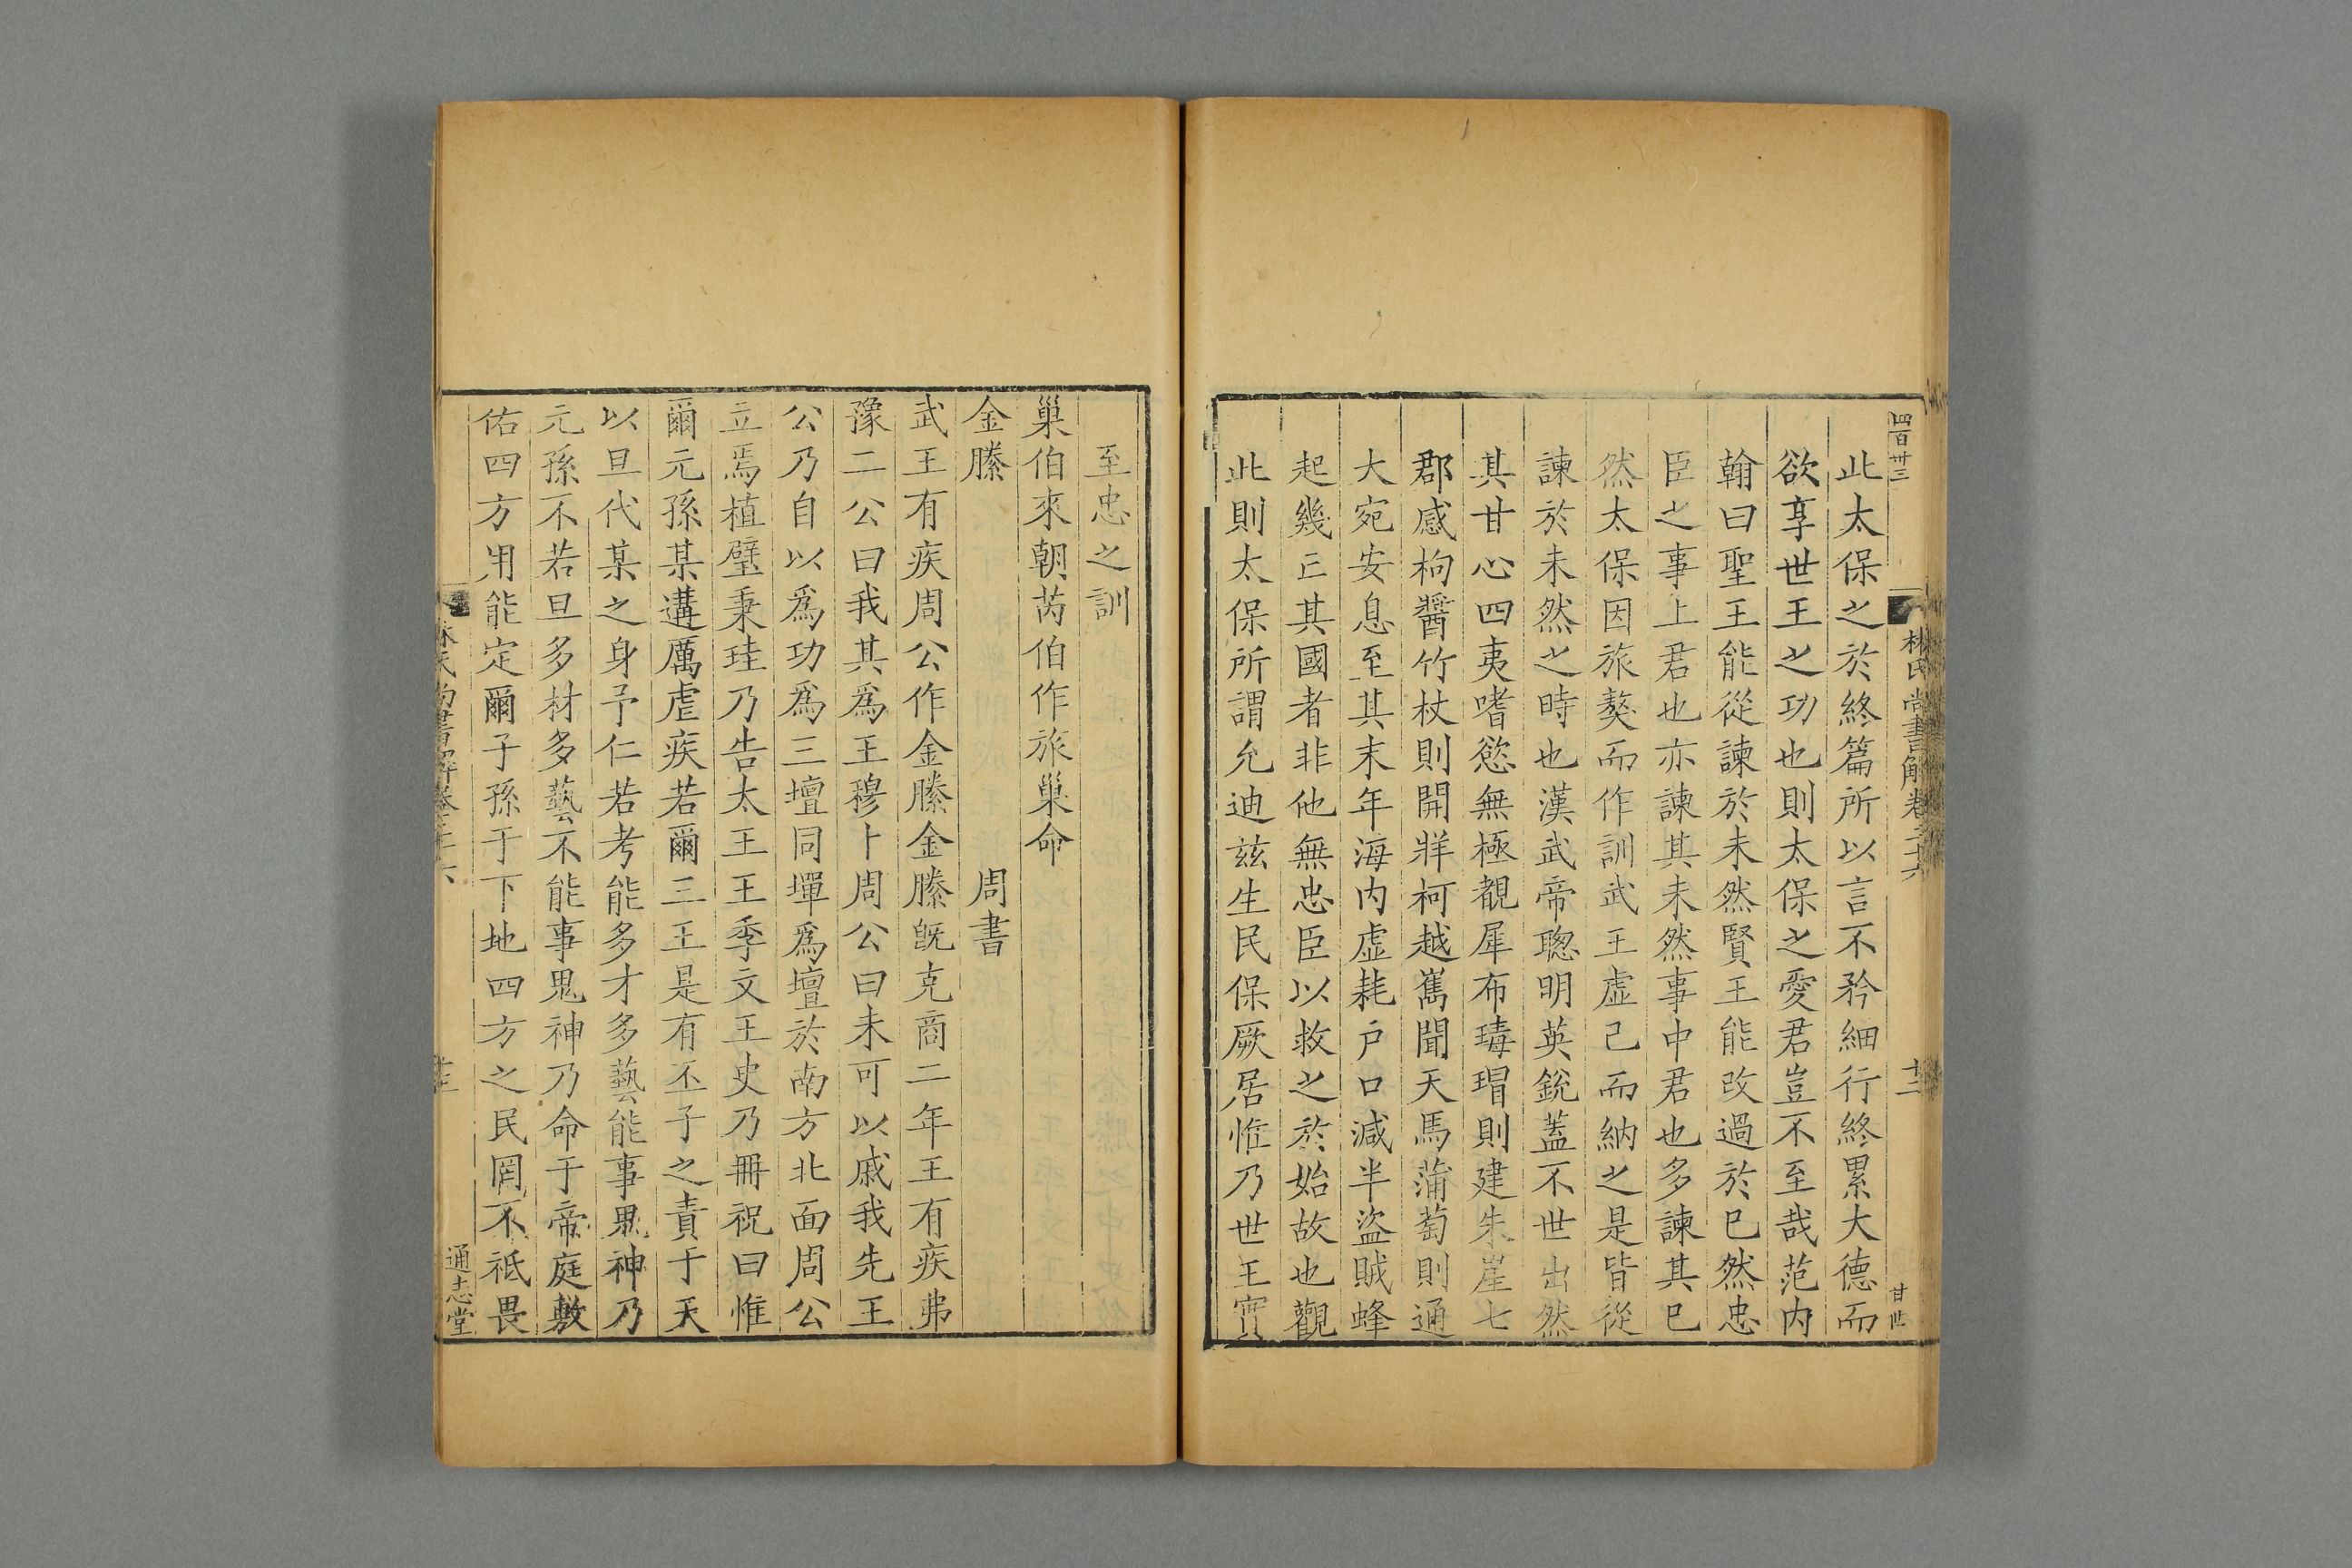 四百卅三
林氏尚書解卷二十六
十二
甘世
此太保之於終篇所以言不矜細行終累大德而
欲享世王之功也則太保之愛君豈不至哉范内
翰曰聖王能從諫於未然賢王能改過於已然忠
臣之事上君也亦諫其未然事中君也多諫其已
然太保因旅獒而作訓武王虛己而納之是皆從
諫於未然之時也漢武帝聰明英銳蓋不世出然
其甘心四夷嗜慾無極覩犀布瑇瑁則建朱崖七
郡感枸醬竹杖則開牂柯越嶲聞天馬蒲萄則通
大宛安息至其末年海内虛耗户口減半盜賊蜂
起幾亡其國者非他無忠臣以救之於始故也觀
此則太保所謂允迪兹生民保厥居惟乃世王實
至忠之訓
巢伯來朝芮伯作旅巢命
金縢　周書
武王有疾周公作金縢金縢既克商二年王有疾弗
豫二公曰我其爲王穆卜周公曰未可以戚我先王
公乃自以爲功爲三壇同墠爲壇於南方北面周公
立焉植璧秉珪乃告太王王季文王史乃冊祝曰惟
爾元孫某遘厲虐疾若爾三王是有丕子之責于天
以旦代某之身予仁若考能多才多藝能事鬼神乃
元孫不若旦多材多藝不能事鬼神乃命于帝庭敷
佑四方用能定爾子孫于下地四方之民罔不祗畏
林氏尚書解卷二十六
通志堂